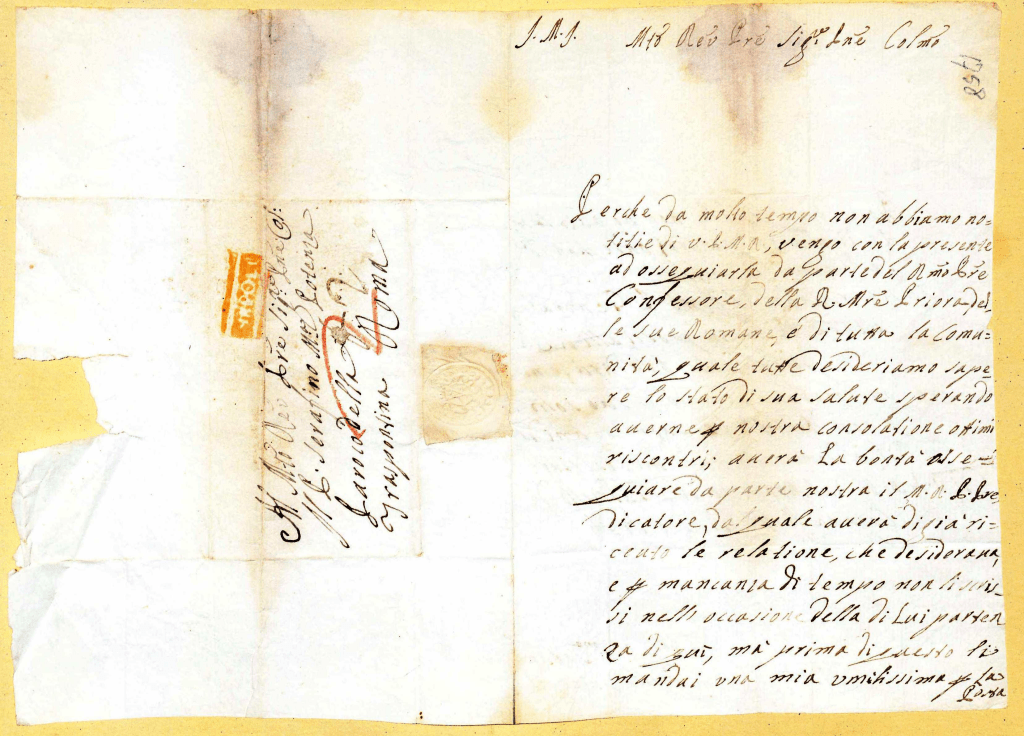 J. M. J.
Mtõ Revῥ Prẽ Sigr. Pnẽ Colmõ
1758
Perche da molto tempo non abbiamo no=
titie di V. P. M. R., vengo con la presente
ad ossequiarla da parte del Rmo Prẽ
Confessore, della R. Mrẽ Priora, del
le sue Romane, e di tutta la Comu=
nità, quale tutte desideriamo sape=
re lo stato di sua salute sperando
averne p nostra consolatione ottimi
riscontri; averà La bontà osse=
quiare da parte nostra il M. R. P. Pre
dicatore, dal quale averà di già ri=
ceuto le relatione, che desiderava,
e p mancanza di tempo non li scris=
si nell occasione della di Lui parten
za di qui, mà prima di questo li
mandai una mia umilissima p La
Posta
Al Mtõ Rev Prẽ Sigr
Il P. Serafino Mra Potenza
Paroco della
Traspontina Roma